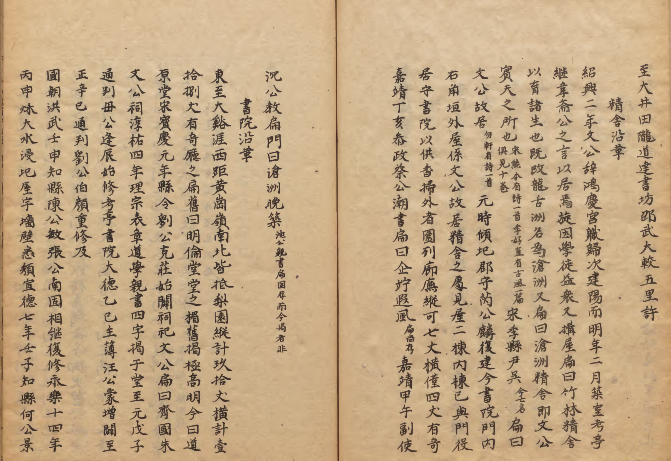 至大井田隴道達書坊邵武大較五里許
精舍沿革
紹興二年文公辞鴻慶宮職歸次建陽而明年二月築室考亭
繼韋齋公之言以居焉旋因學徒益衆又構屋扁曰竹林精舍
以育諸生也既改龍舌洲名為滄洲又扁曰滄洲精舍即文公
賓天之所也宋熊禾有詩一首李好有古風一篇俱見十卷宋季縣尹吳令亡名扁曰
文公故居勿軒有詩一首元時傾圯郡守公麟復建今書院門內
右角垣外屋係文公故居精舍之廢見屋二棟內棟已與門役
居守書院以供香掃外者圍列廊廡縱可七丈橫僅四丈有奇
嘉靖丁亥叅政蔡公潮書扁曰企竚遐風扁尚存嘉靖甲午副使
沉公教扁門曰滄洲晚築池公親書扁囬存而今揭者非
書院沿革
東至大谿涯西距黄崗嶺南北皆抵梨園縱計玖拾丈橫計壹
拾捌丈有奇廰之扁舊曰明倫堂堂之楣舊揭極高明今曰道
原堂宋寳慶元年縣令劉公克莊始闢祠祀文公扁曰齊國朱
文公祠淳祐四年理宗表章道學親書四字揭于堂至元戊子
通判毋公逢辰始修考亭書院大德乙巳主薄汪公蒙增闢至
正辛巳通判劉公伯顏重修及
國朝洪武壬申知縣陳公敏張公南囬相繼復修永樂十四年
丙申秋大水浸圯屋宇墻壁悉頹宣德七年壬子知縣何公景